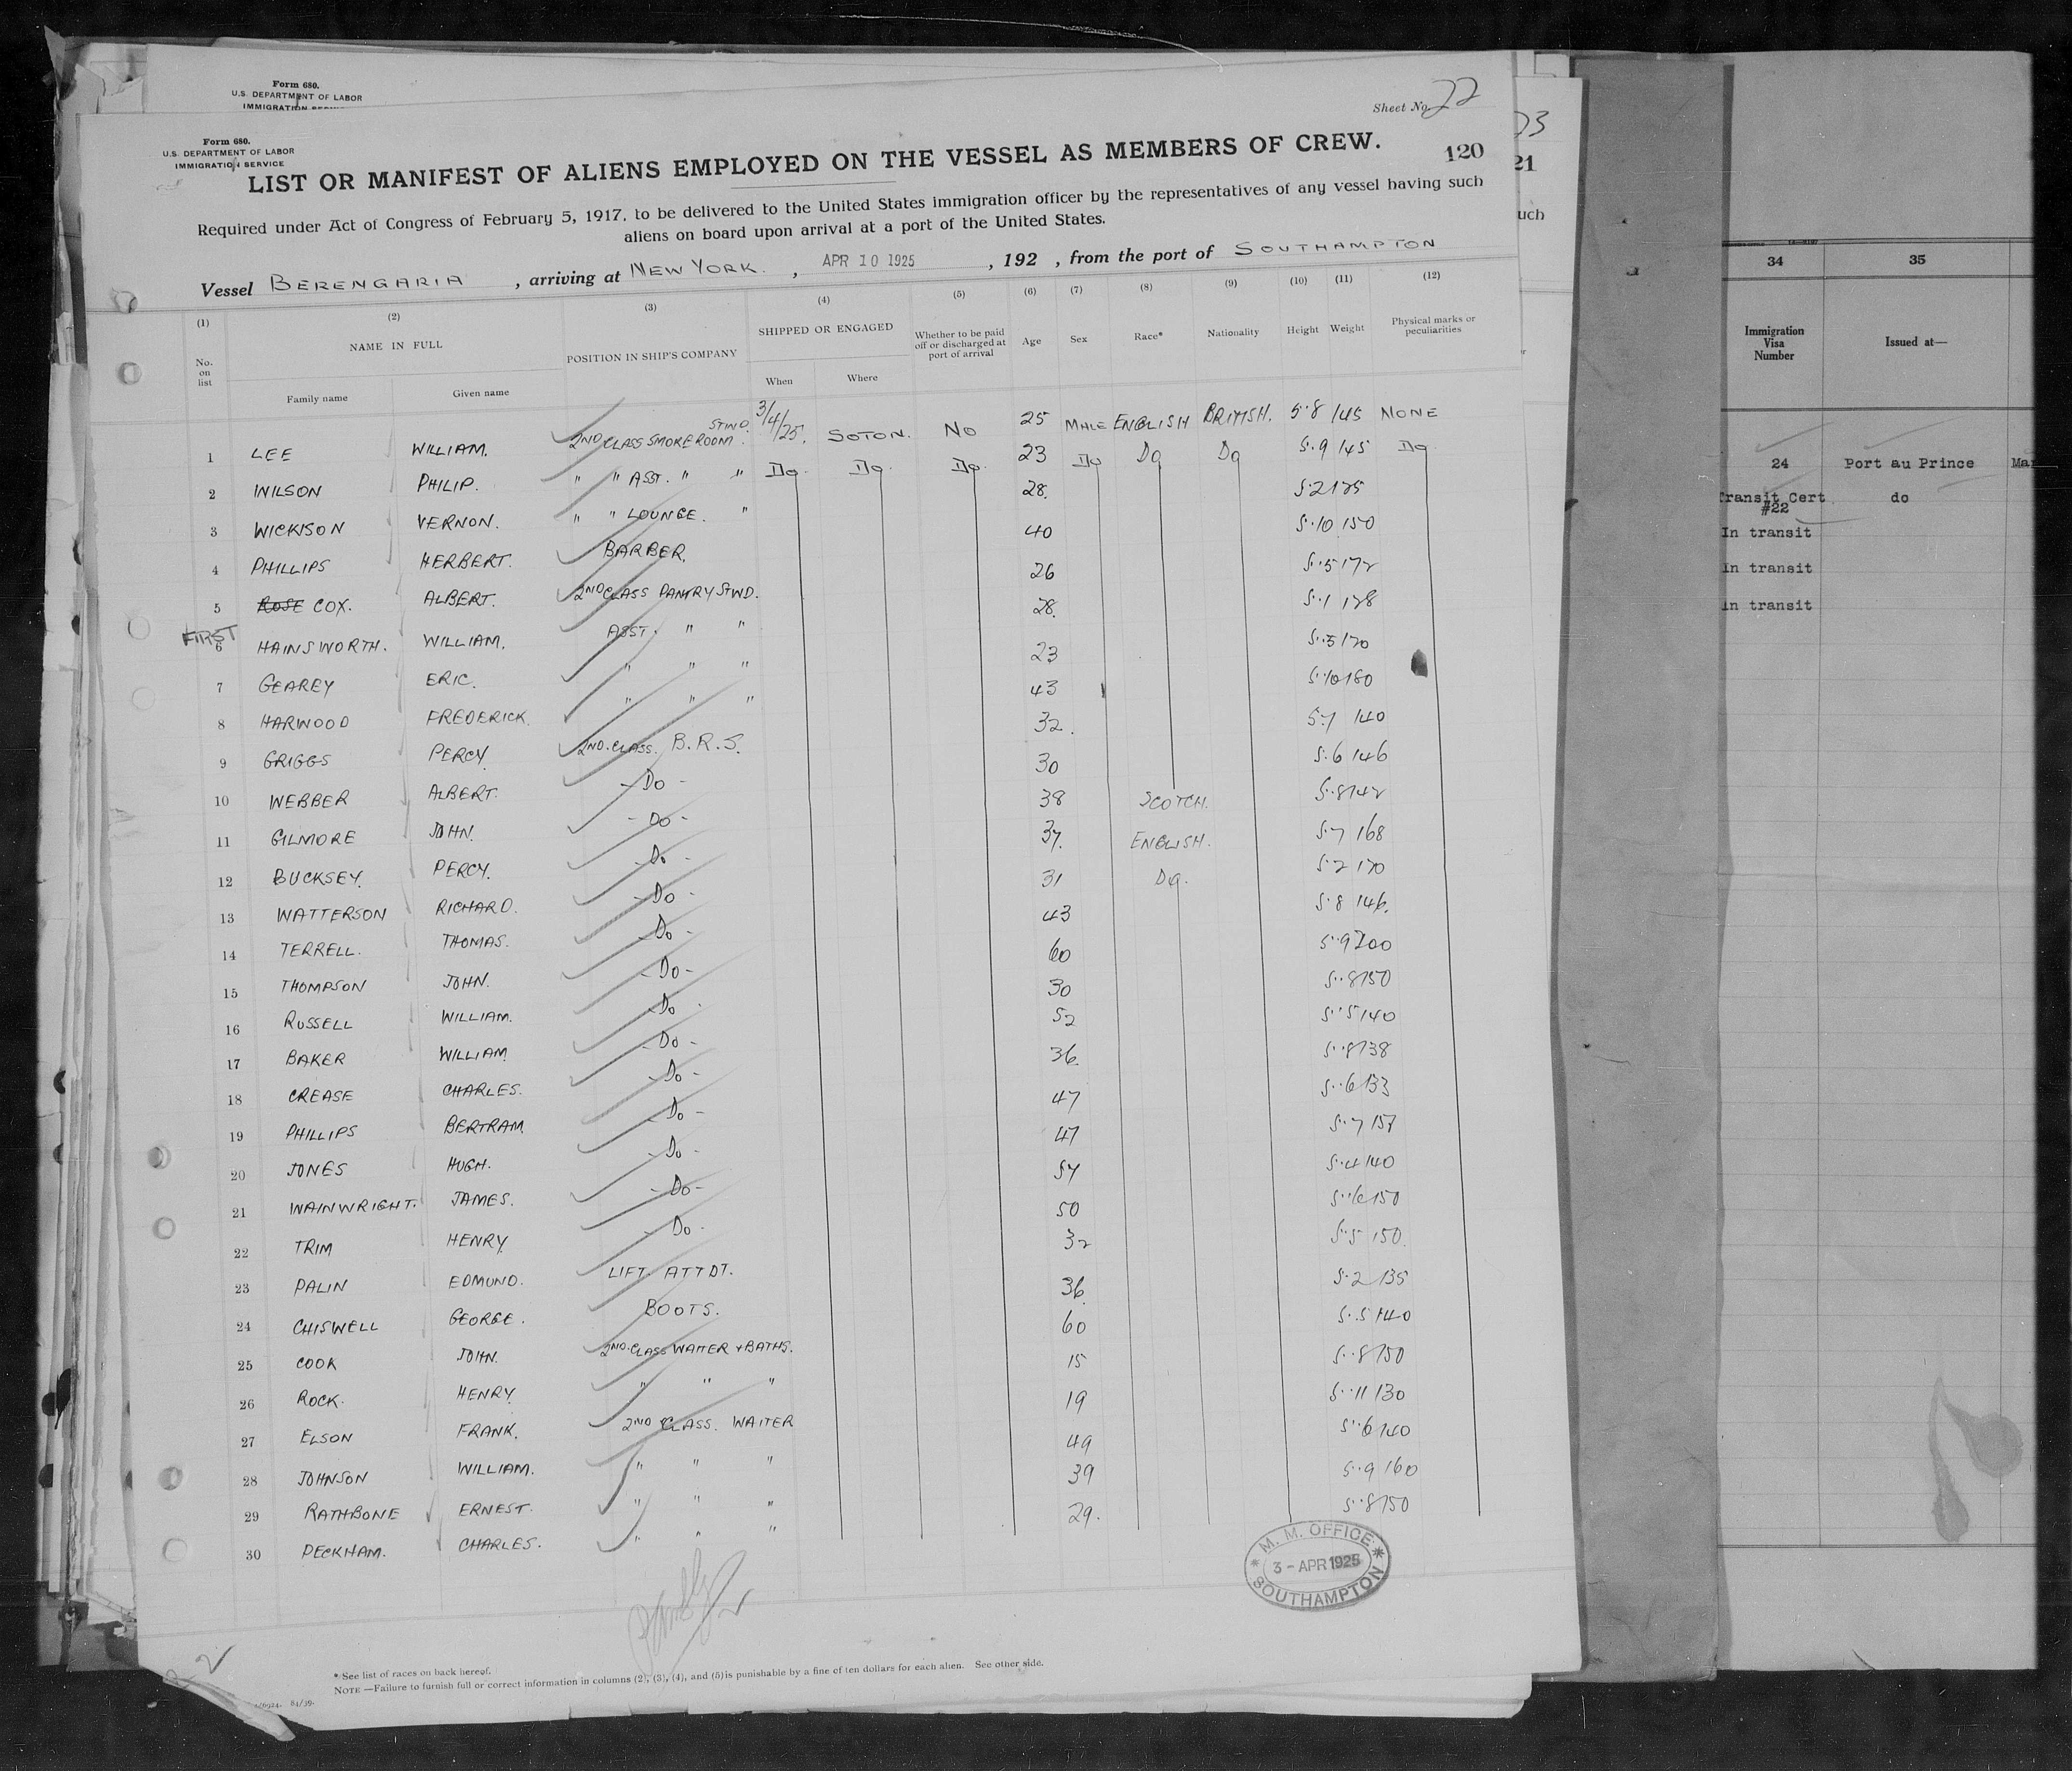 Form 680.
U.S. DEPARTMENT OF LABOR
IMMIGRATION SERVICE
Sheet No. 22
Form 680.
U.S. DEPARTMENT OF LABOR
IMMIGRATION SERVICE
LIST OR MANIFEST OF ALIENS EMPLOYED ON THE VESSEL AS MEMBERS OF CREW. 120
Required under Act of Congress of February 5, 1917, to be delivered to the United States immigration officer by the representatives of any vessel having such
aliens on board upon arrival at a port of the United States.
Vessel BERENGARIA, arriving at NEW YORK., APR 10 1925, 192 , from the port of SOUTHAMPTON
(1) (2) (3) (4) (5) (6) (7) (8) (9) (10) (11) (12)
No. on list NAME IN FULL POSITION IN SHIP'S COMPANY SHIPPED OR ENGAGED Whether to be paid off or discharged at port of arrival Age Sex Race* Nationality Height Weight Physical marks or peculiarities
Family name Given name When Where
1 LEE WILLIAM. 2ND CLASS SMOKEROOM STWD. 3/4/25. SOTON. NO 25 MALE ENGLISH BRITISH. 5.8 145 NONE
2 WILSON PHILIP. " " ASST. " " Do. Do. Do. 23 Do Do Do 5.9 145 Do
3 WICKISON VERNON. " " LOUNGE. " 28. 5.2 125
4 PHILLIPS HERBERT. BARBER. 40 5.10 150
5 ROSE COX. ALBERT. 2ND CLASS PANTRY STWD. 26 5.5 172
FIRST
6 HAINSWORTH. WILLIAM. ASST. " " 28. 5.1 128
7 GEAREY ERIC. " " " 23 5.5 170
8 HARWOOD FREDERICK. " " " 43 5.10 180
9 GRIGGS PERCY 2ND. CLASS. B.R.S. 32. 5.7 140
10 WEBBER ALBERT. - Do - 30 5.6 146
11 GILMORE JOHN. - Do - 38 SCOTCH. 5.8 142
12 BUCKSEY. PERCY. - Do - 37. ENGLISH. 5.7 168
13 WATTERSON RICHARD. - Do - 31 Do. 5.2 170
14 TERRELL. THOMAS. - Do - 43 5.8 146.
15 THOMPSON JOHN. - Do - 60 5.9 200
16 RUSSELL WILLIAM. - Do - 30 5.8 150
17 BAKER WILLIAM - Do - 52 5.5 140
18 CREASE CHARLES. - Do - 36 5.8 138
19 PHILLIPS BERTRAM - Do - 47 5.6 133
20 JONES HUGH. - Do - 47 5.7 157
21 WAINWRIGHT. JAMES. - Do - 57 5.4 140
22 TRIM HENRY - Do - 50 5.6 150
23 PALIN EDMUND. LIFT. ATTDT. 32 5.5 150.
24 CHISWELL GEORGE. BOOTS. 36 5.2 135
25 COOK JOHN. 2ND. CLASS WAITER + BATHS. 60 5.5 140
26 ROCK. HENRY. " " " 15 5.8 150
27 ELSON FRANK. 2ND CLASS. WAITER 19 5.11 130
28 JOHNSON WILLIAM. " " " 49 5.6 140
29 RATHBONE ERNEST. " " " 39 5.9 160
30 PECKHAM. CHARLES. " " " 29. 5.8 150
M. M. OFFICE
3 - APR 1925
SOUTHAMPTON
* See list of races on back hereof.
NOTE —Failure to furnish full or correct information in columns (2), (3), (4), and (5) is punishable by a fine of ten dollars for each alien. See other side.
84/39.
21
uch
34 35
Immigration Visa Number Issued at—
24 Port au Prince
Transit Cert #22 do
In transit
In transit
In transit